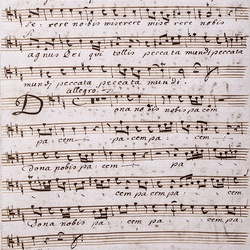 se re re no bis miserere mise rere nobis
agnus Dei qui tollis peccata mundi peccata
mundi peccata peccata mundi.
allegro.
Dona nobis nobis pacem
pa cem pa cem pa cem
dona nobis pa cem pa
cem pa cem pa cem
dona nobis pa cem pa
cem